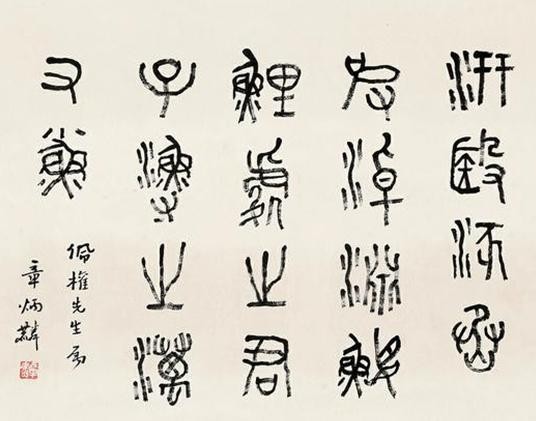 汧殹沔丞
皮淖淵鰋
鯉處之君
子漁之澫
又小魚
佩權先生屬
章炳麟